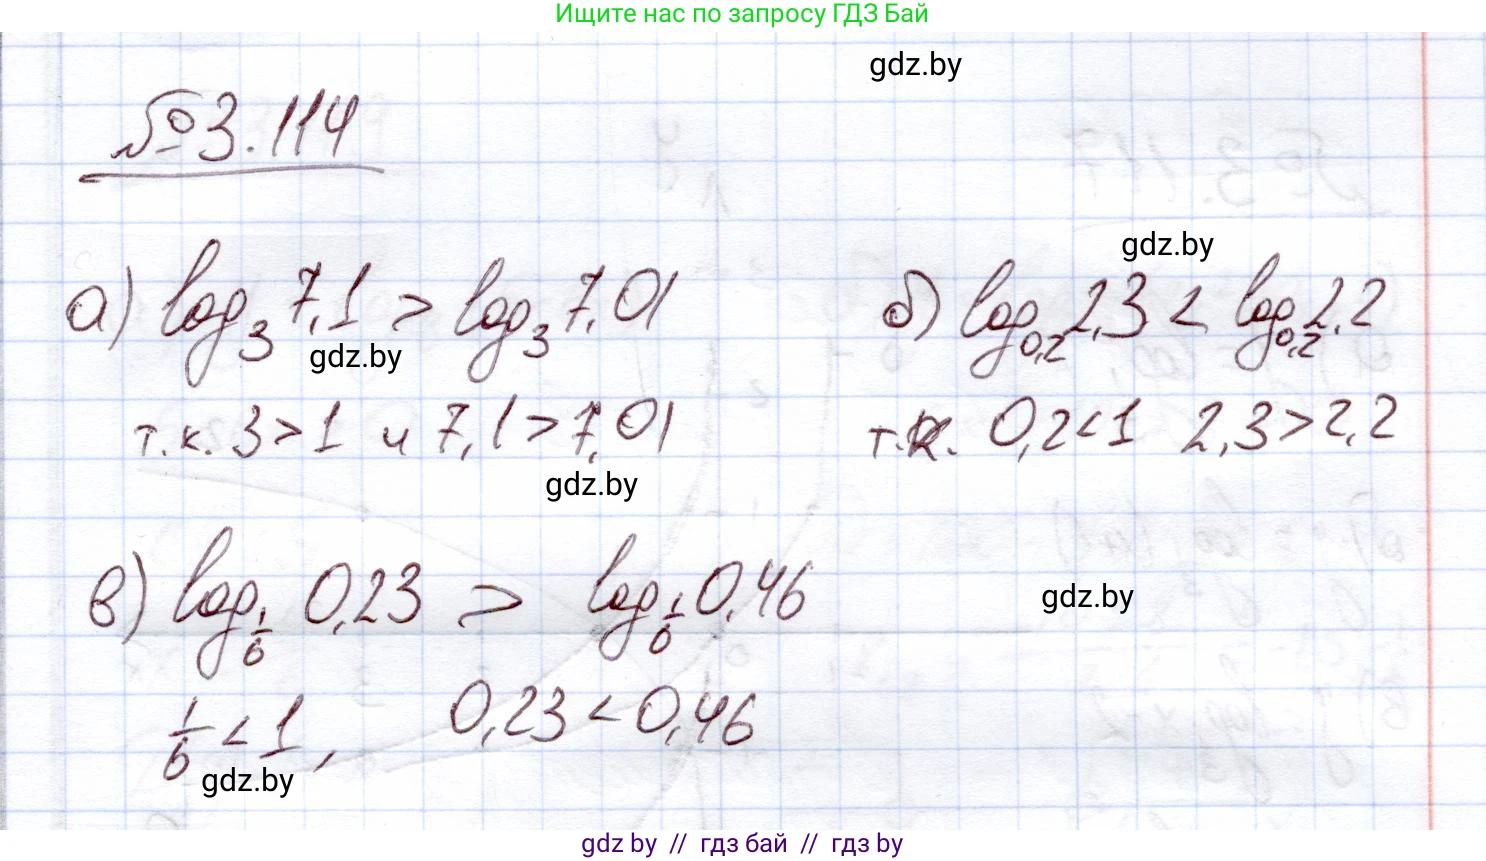 Ищите нас по запросу ГДЗ Бай
gdz.by
№3.114
gdz.by
а) log₃ 7,1 > log₃ 7,01
б) log₀,₂ 2,3 < log₀,₂ 2,2
gdz.by
т.к. 3 > 1 и 7,1 > 7,01
т.к. 0,2 < 1 2,3 > 2,2
gdz.by
в) log_{1/6} 0,23 > log_{1/6} 0,46
gdz.by
1/6 < 1, 0,23 < 0,46
gdz.by
gdz.by // гдз бай // gdz.by